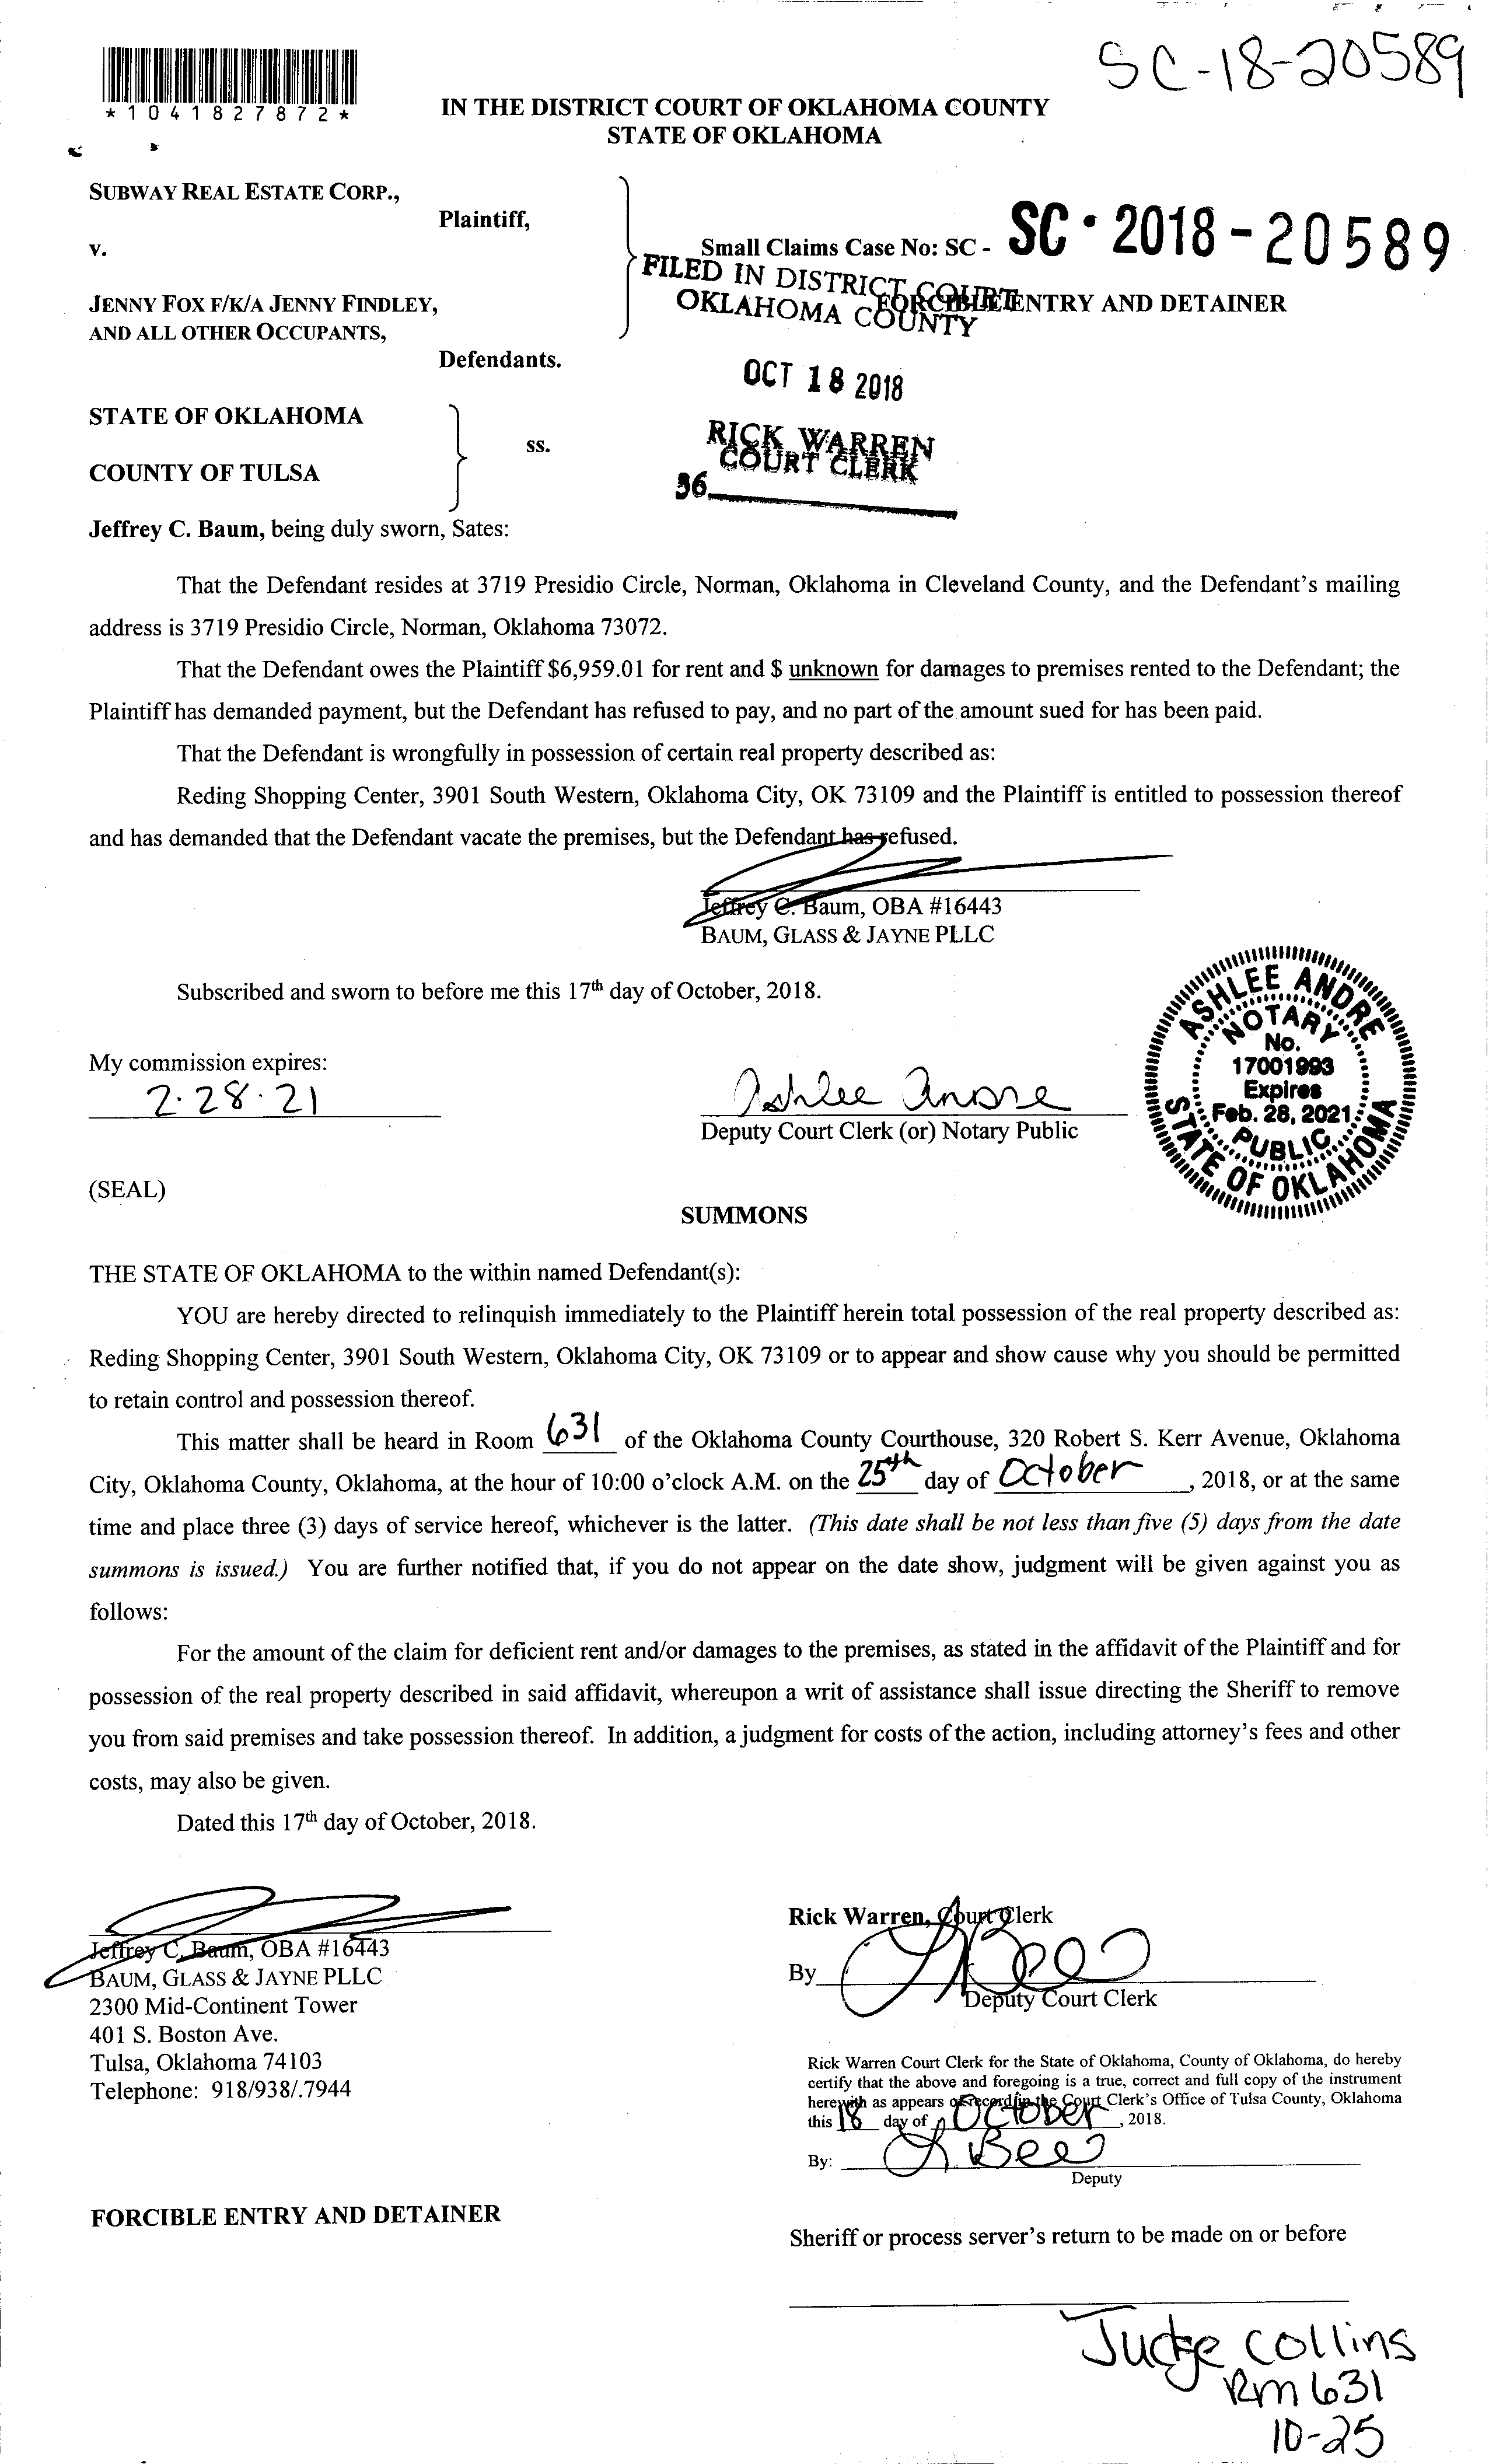 SC-18-20589
*1041827872*
IN THE DISTRICT COURT OF OKLAHOMA COUNTY
STATE OF OKLAHOMA
SUBWAY REAL ESTATE CORP.,
Plaintiff,
v.
Small Claims Case No: SC - SC • 2018 - 20589
FILED IN DISTRICT COURT
OKLAHOMA COUNTY
JENNY FOX F/K/A JENNY FINDLEY,
FORCIBLE ENTRY AND DETAINER
AND ALL OTHER OCCUPANTS,
Defendants.
OCT 18 2018
STATE OF OKLAHOMA
ss.
RICK WARREN
COURT CLERK
COUNTY OF TULSA
36
Jeffrey C. Baum, being duly sworn, Sates:
That the Defendant resides at 3719 Presidio Circle, Norman, Oklahoma in Cleveland County, and the Defendant's mailing
address is 3719 Presidio Circle, Norman, Oklahoma 73072.
That the Defendant owes the Plaintiff $6,959.01 for rent and $ unknown for damages to premises rented to the Defendant; the
Plaintiff has demanded payment, but the Defendant has refused to pay, and no part of the amount sued for has been paid.
That the Defendant is wrongfully in possession of certain real property described as:
Reding Shopping Center, 3901 South Western, Oklahoma City, OK 73109 and the Plaintiff is entitled to possession thereof
and has demanded that the Defendant vacate the premises, but the Defendant has refused.
Jeffrey C. Baum, OBA #16443
BAUM, GLASS & JAYNE PLLC
Subscribed and sworn to before me this 17th day of October, 2018.
My commission expires:
2·28·21
Ashlee Andre
Deputy Court Clerk (or) Notary Public
ASHLEE ANDRE
NOTARY
No.
17001993
Expires
Feb. 28, 2021
PUBLIC
STATE OF OKLAHOMA
(SEAL)
SUMMONS
THE STATE OF OKLAHOMA to the within named Defendant(s):
YOU are hereby directed to relinquish immediately to the Plaintiff herein total possession of the real property described as:
Reding Shopping Center, 3901 South Western, Oklahoma City, OK 73109 or to appear and show cause why you should be permitted
to retain control and possession thereof.
This matter shall be heard in Room 631 of the Oklahoma County Courthouse, 320 Robert S. Kerr Avenue, Oklahoma
City, Oklahoma County, Oklahoma, at the hour of 10:00 o'clock A.M. on the 25th day of October, 2018, or at the same
time and place three (3) days of service hereof, whichever is the latter. (This date shall be not less than five (5) days from the date
summons is issued.) You are further notified that, if you do not appear on the date show, judgment will be given against you as
follows:
For the amount of the claim for deficient rent and/or damages to the premises, as stated in the affidavit of the Plaintiff and for
possession of the real property described in said affidavit, whereupon a writ of assistance shall issue directing the Sheriff to remove
you from said premises and take possession thereof. In addition, a judgment for costs of the action, including attorney's fees and other
costs, may also be given.
Dated this 17th day of October, 2018.
Jeffrey C. Baum, OBA #16443
BAUM, GLASS & JAYNE PLLC
2300 Mid-Continent Tower
401 S. Boston Ave.
Tulsa, Oklahoma 74103
Telephone: 918/938/.7944
Rick Warren, Court Clerk
By
Deputy Court Clerk
Rick Warren Court Clerk for the State of Oklahoma, County of Oklahoma, do hereby
certify that the above and foregoing is a true, correct and full copy of the instrument
herewith as appears of record in the Court Clerk's Office of Tulsa County, Oklahoma
this 18 day of October, 2018.
By:
Deputy
FORCIBLE ENTRY AND DETAINER
Sheriff or process server's return to be made on or before
Judge Collins
Rm 631
10-25